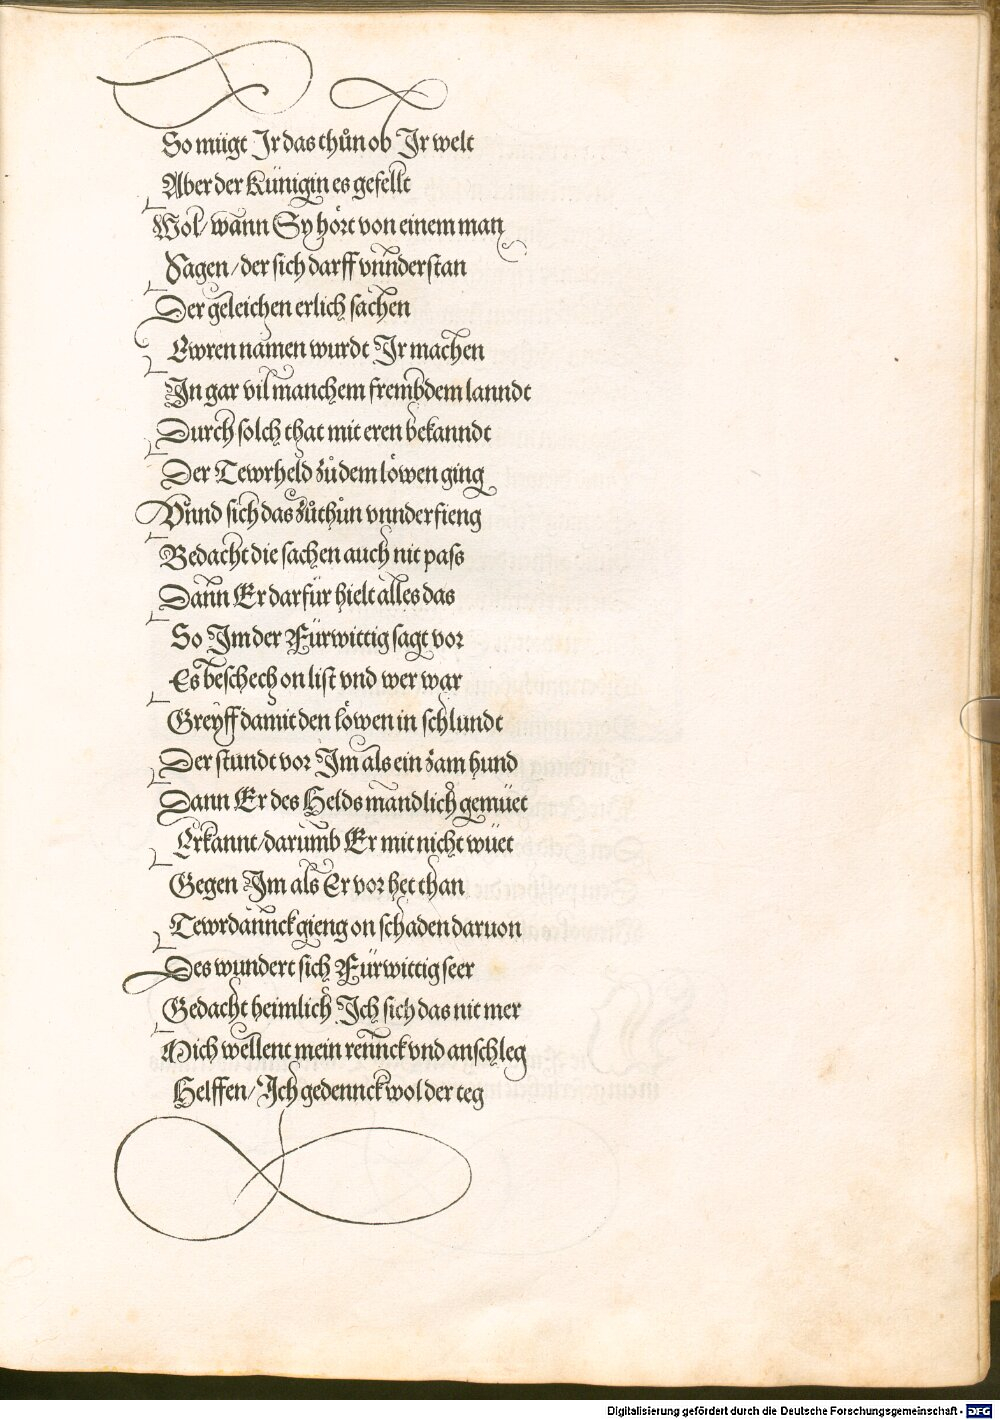 So mügt Ir das thůn ob Ir welt
Aber der Künigin es gefellt
Wol/ wann Sy hört von einem man
Sagen/ der sich darff vnnderstan
Der geleichen erlich sachen
Ewren namen wurdt Ir machen
In gar vil manchem frembdem lanndt
Durch solch that mit eren bekanndt
Der Tewrheld zů dem löwen ging
Vnnd sich das zůthůn vnnderfieng
Bedacht die sachen auch nit pass
Dann Er darfür hielt alles das
So Im der Fürwittig sagt vor
Es beschech on list vnd wer war
Greyff damit den löwen in schlundt
Der stundt vor Im als ein zam hund
Dann Er des Helds mandlich gemüet
Erkannt/ darumb Er mit nicht wüet
Gegen Im als Er vor het than
Tewrdannck gieng on schaden daruon
Des wundert sich Fürwittig seer
Gedacht heimlich Ich sich das nit mer
Mich wellent mein rennck vnd anschleg
Helffen/ Ich gedennck wol der teg
Digitalisierung gefördert durch die Deutsche Forschungsgemeinschaft - DFG